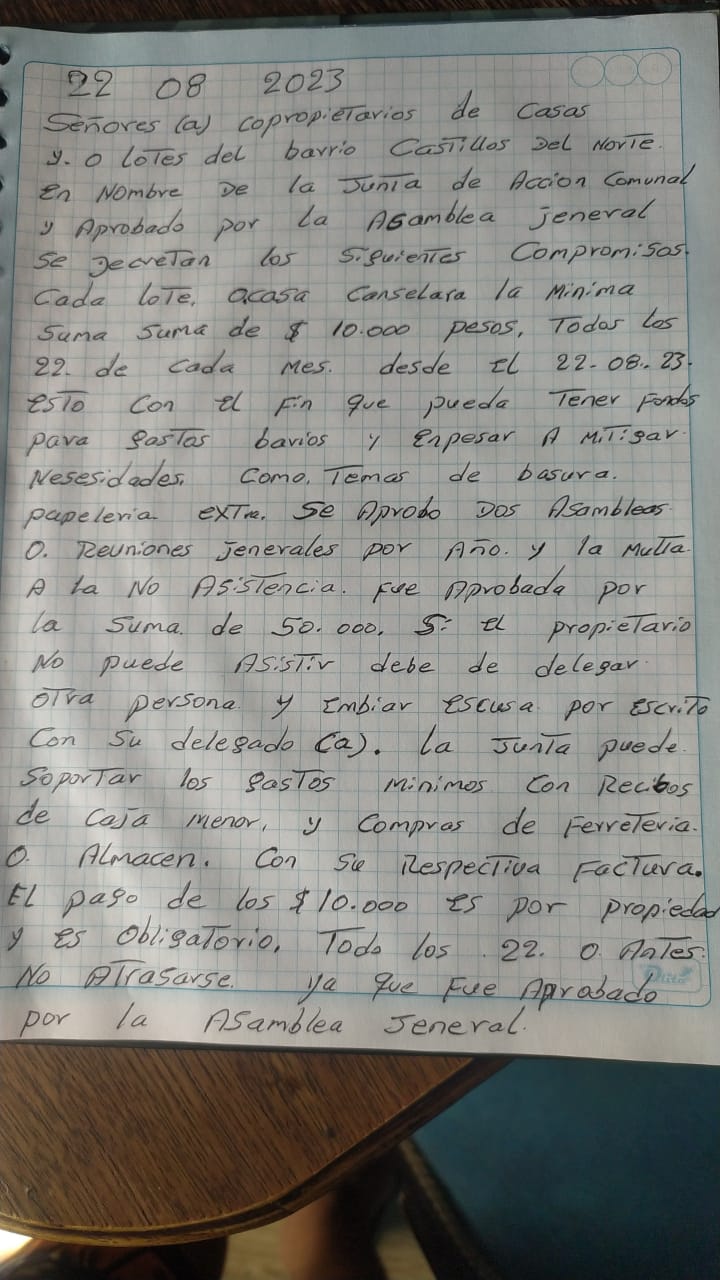 22 08 2023
Señores (a) copropietarios de Casas
y. o lotes del barrio Castillos Del Norte.
En Nombre De la Junta de Accion Comunal
y Aprobado por La Asamblea jeneral
Se Decretan los Siguientes Compromisos.
Cada lote, acasa Canselara la Minima
Suma Suma de $ 10.000 pesos, Todos los
22. de cada Mes. desde El 22-08..23.
Esto Con El Fin que pueda Tener Fondos
para gastos barios y Enpesar A Mitigar.
Nesesidades. Como, Temas de basura.
papeleria extra. Se Aprobo Dos Asambleas
O. Reuniones jenerales por Año. y la Multa
A la No Asistencia. Fue Aprobada por
la Suma. de 50.000. Si El propietario
No puede Asistir debe de delegar.
otra persona y Embiar Escusa por Escrito
Con Su delegado (a). La Junta puede.
Soportar los gastos Minimos Con Recibos
de Caja Menor, y Compras de Ferreteria.
O. Almacen. Con Su Respectiva Factura.
El pago de los $10.000 Es por propiedad
y Es Obligatorio. Todo los .22. o Antes.
No Atrasarse. ya que Fue Aprobado
por la Asamblea Jeneral.